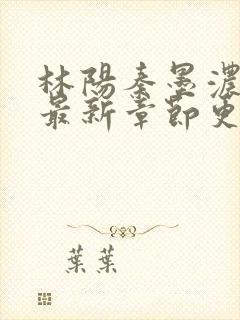 林陽秦墨濃
最新章節更
葉葉